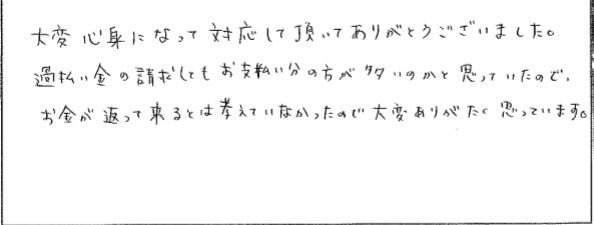 大変心身になって対応して頂いてありがとうございました。
過払い金の請求してもお支払い分の方が多いのかと思っていたので、
お金が返って来るとは考えていなかったので大変ありがたく思っています。